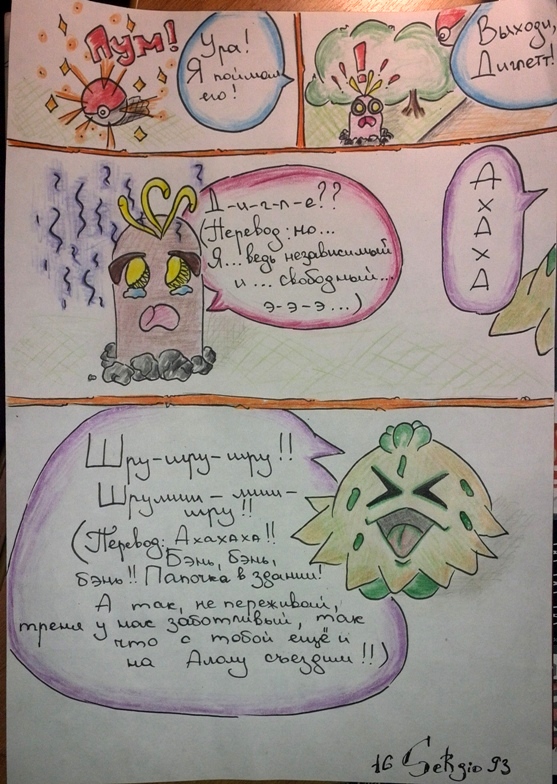 Пум!
Ура!
Я поймал
его!
Выходи,
Диглетт!
Д-и-г-л-е??
(Перевод: но...
Я... ведь независимый
и... свободный...
э-э-э...)
А
Х
А
Х
А
Шру-шру-шру!!
Шрумиш-миш-
шру!!
(Перевод: Ахахаха!!
Бэнь, бэнь,
бэнь!! Папочка в здании!
А так, не переживай,
треня у нас заботливый, так
что с тобой ещё и
на Алолу съездим!!)
16 SeRgio 93